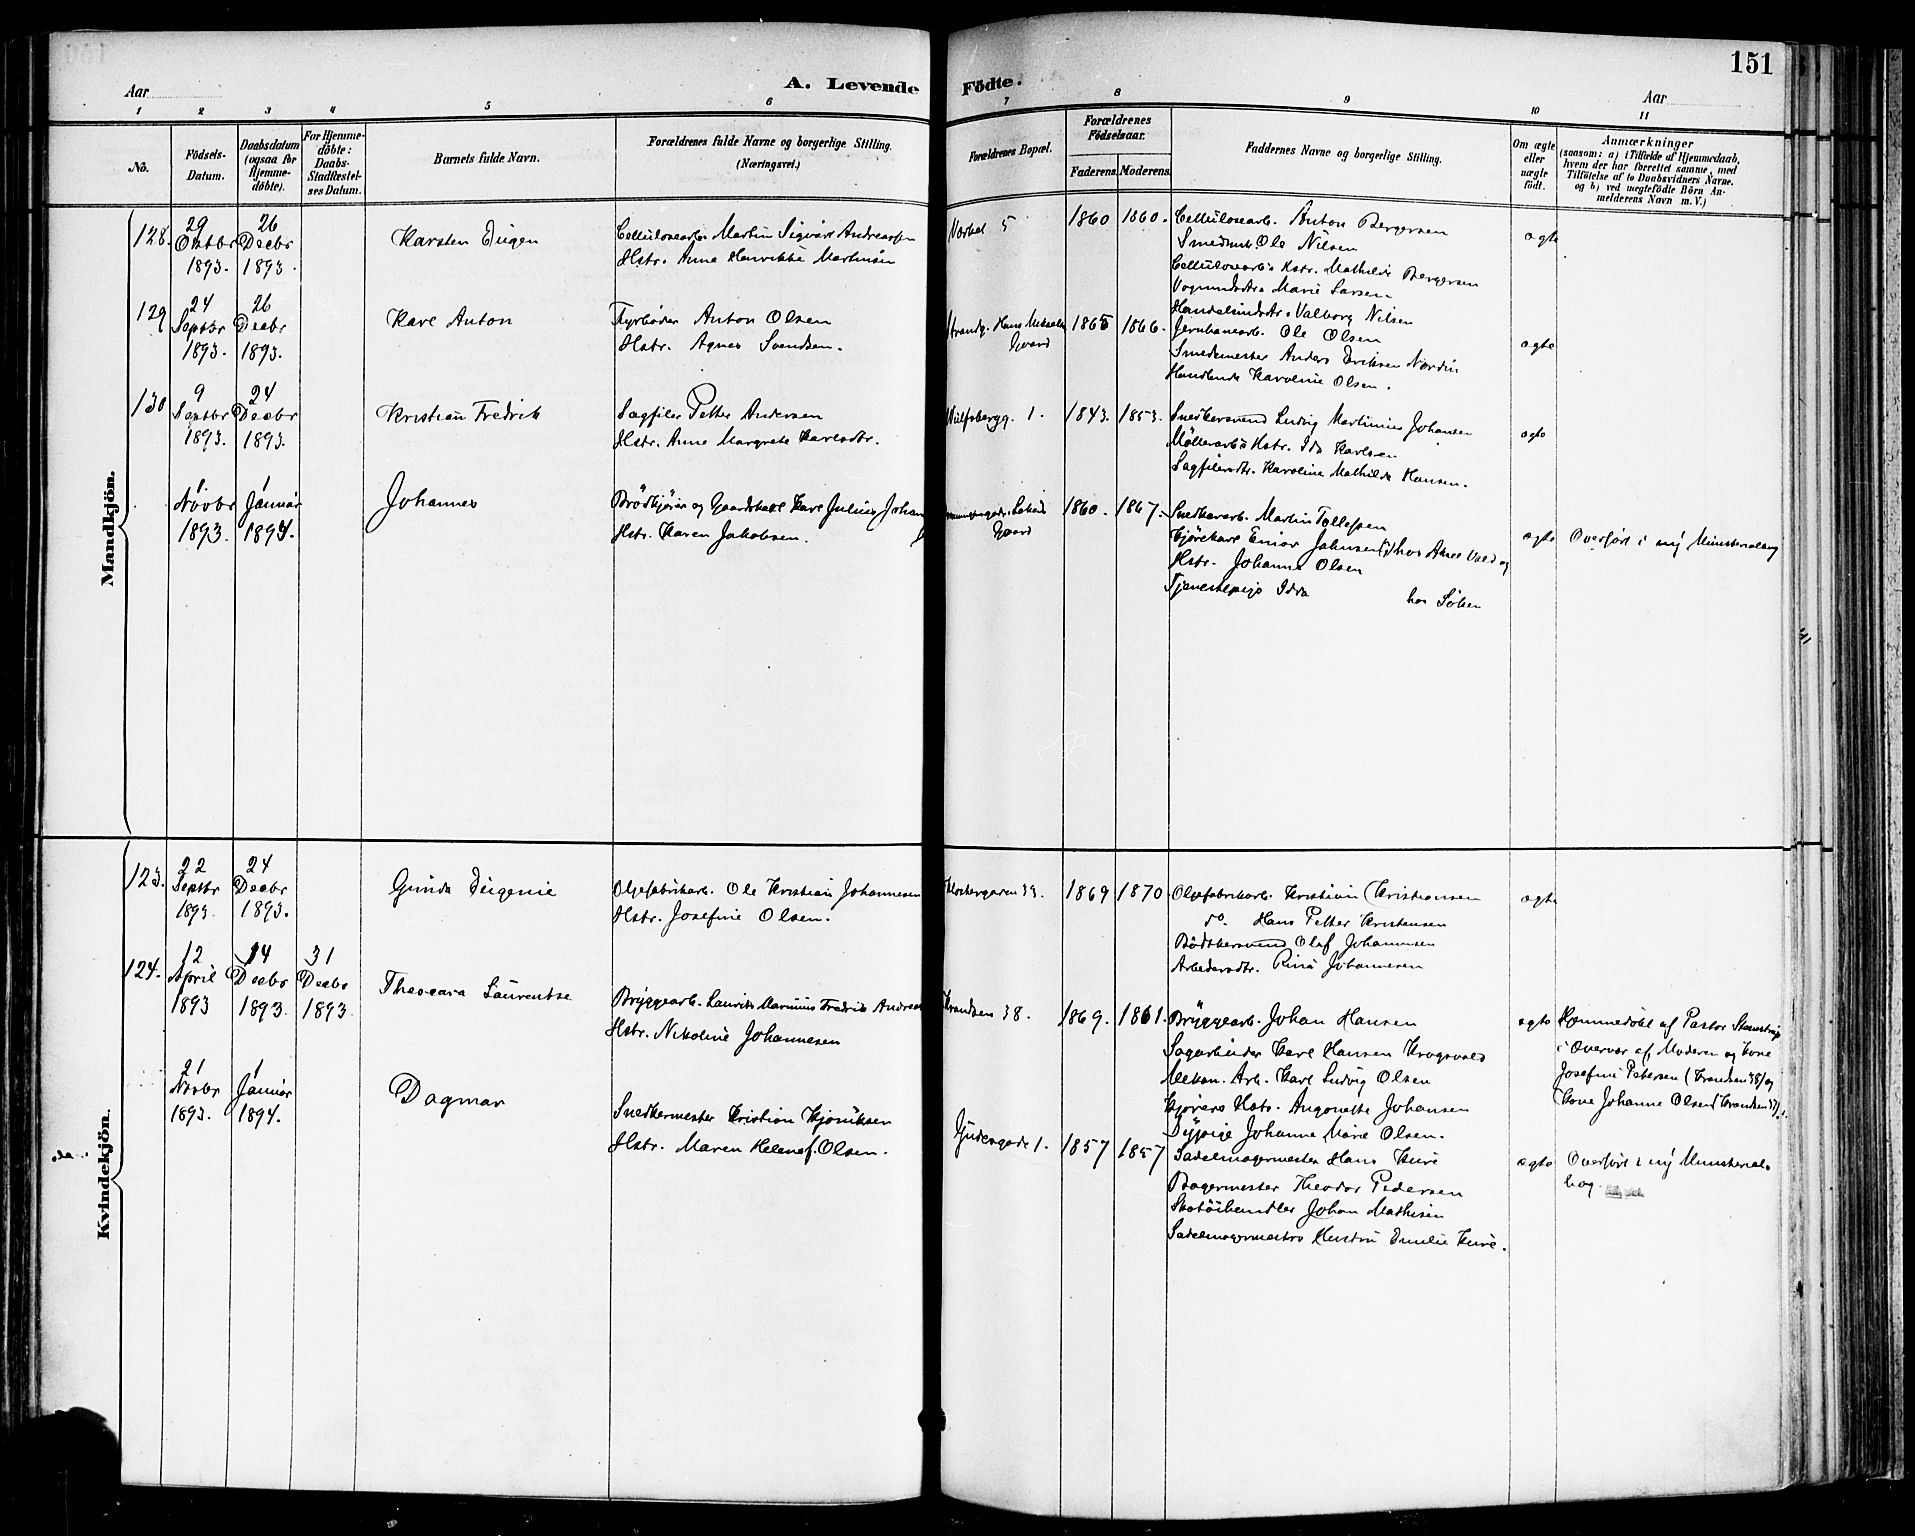 151
Aar
A. Levende
Födte.
Aar
1 2 3 4 5 6 7 8 9 10 11
No.
Födsels-
Datum.
Daabsdatum
(ogsaa for
Hjemme-
döbte).
For Hjemme-
döbte:
Daabs-
Stadfæstel-
ses Datum.
Barnets fulde Navn.
Forældrenes fulde Navne og borgerlige Stilling.
(Næringsvei.)
Forældrenes Bopæl.
Forældrenes
Födselsaar.
Faderens. Moderens.
Faddernes Navne og borgerlige Stilling.
Om ægte
eller
uægte
födt.
Anmærkninger
(saasom: a) i Tilfælde af Hjemmedaab,
hvem der har forrettet samme, med
Tilföielse af to Daabsvidners Navne.
og b) ved uægtefödte Börn An-
melderens Navn m. V.)
Mandkjön.
128.
29
Oktbr
1893.
26
Decbr
1893.
Karsten Eugen
Cellulosearb. Martin Sigvart Andreassen
Hstr. Anne Henrikke Martinsen
5
1860 1860.
Cellulosearb. Anton Bergersen
Smedsvd. Ole Nilsen
Cellulosearbs Hstr. Mathilde Bergersen
Vognmdsdtr. Marie Larsen
Handelsmdsdtr. Valborg Nilsen
ægte
129
24
Septbr
1893.
26
Decbr
1893.
Karl Anton
Fyrböder Anton Olsen
Hstr. Agnes Svendsen.
Strandg. Hans
Gaard
1865 1866.
Jernbanearb. Ole Olsen
Smedemester Anders Eriksen Nordin
Handlende Karoline Olsen.
ægte
130
9
Septbr
1893.
24
Decbr
1893.
Kristian Fredrik
Sagfiler Petter Andersen
Hstr. Anne Margrete Karlsdtr.
Wulfsbergg. 1.
1843. 1853.
Snedkersvend Ludvig Martinius Johansen
Möllerarbs Hstr. Ida Karlsen
Sagfilersdtr. Karoline Mathilde Hansen.
ægte
1
Novbr
1893.
1
Januar
1894.
Johannes
Brödkjörer og Gaardskarl Karl Julius Johan
Hstr. Karen Jakobsen.
Gaard
1860. 1867.
Snedkerarb. Martin Tollefsen
Kjörekarl Einar Johnsen hos Anne Vold og
Hstr. Johanne Olsen
Tjenestepige Ida hos Söhen
ægte
Overfört i ny Ministerialbog
Kvindekjön.
123.
22
Septbr
1893.
24
Decbr
1893.
Gunda Eugenie
Oljefabrikarb. Ole Kristian Johannesen
Hstr. Josefine Olsen.
Klostergaden 39.
1869 1870
Oljefabrikarb. Kristian Kristiansen
do. Hans Petter Kristensen
Bödkersvend Olaf Johannesen
Arbeidersdtr. Rina Johannesen
ægte
124.
12
April
1893
14
Decbr
1893.
31
Decbr
1893.
Theodora Laurentse
Bryggearb. Laurits Marinius Fredrik Andreas
Hstr. Nikoline Johannesen
38.
1869. 1861.
Bryggearb. Johan Hansen
Sagarbeider Karl Hansen Krogsvold
Mekan. Arb. Karl Ludvig Olsen
Kjörers Hstr. Angonette Johansen
Sypige Johanne Marie Olsen.
ægte
Hjemmedöbt af Pastor
i Overvær af Moderen og Kone
Josefine Petersen og
Kone Johanne Olsen
21
Novbr
1893.
1
Januar
1894.
Dagmar
Snedkermester Kristian Kjöniksen
Hstr. Maren Helene f. Olsen.
Gjutergade 1.
1857 1857
Sadelmagermester Hans Kure
Bagermester Theodor Pedersen
Skotöihandler Johan Mathisen
Sadelmagermesters Hustru Emilie Kure.
ægte
Overfört i ny Ministerial-
bog.